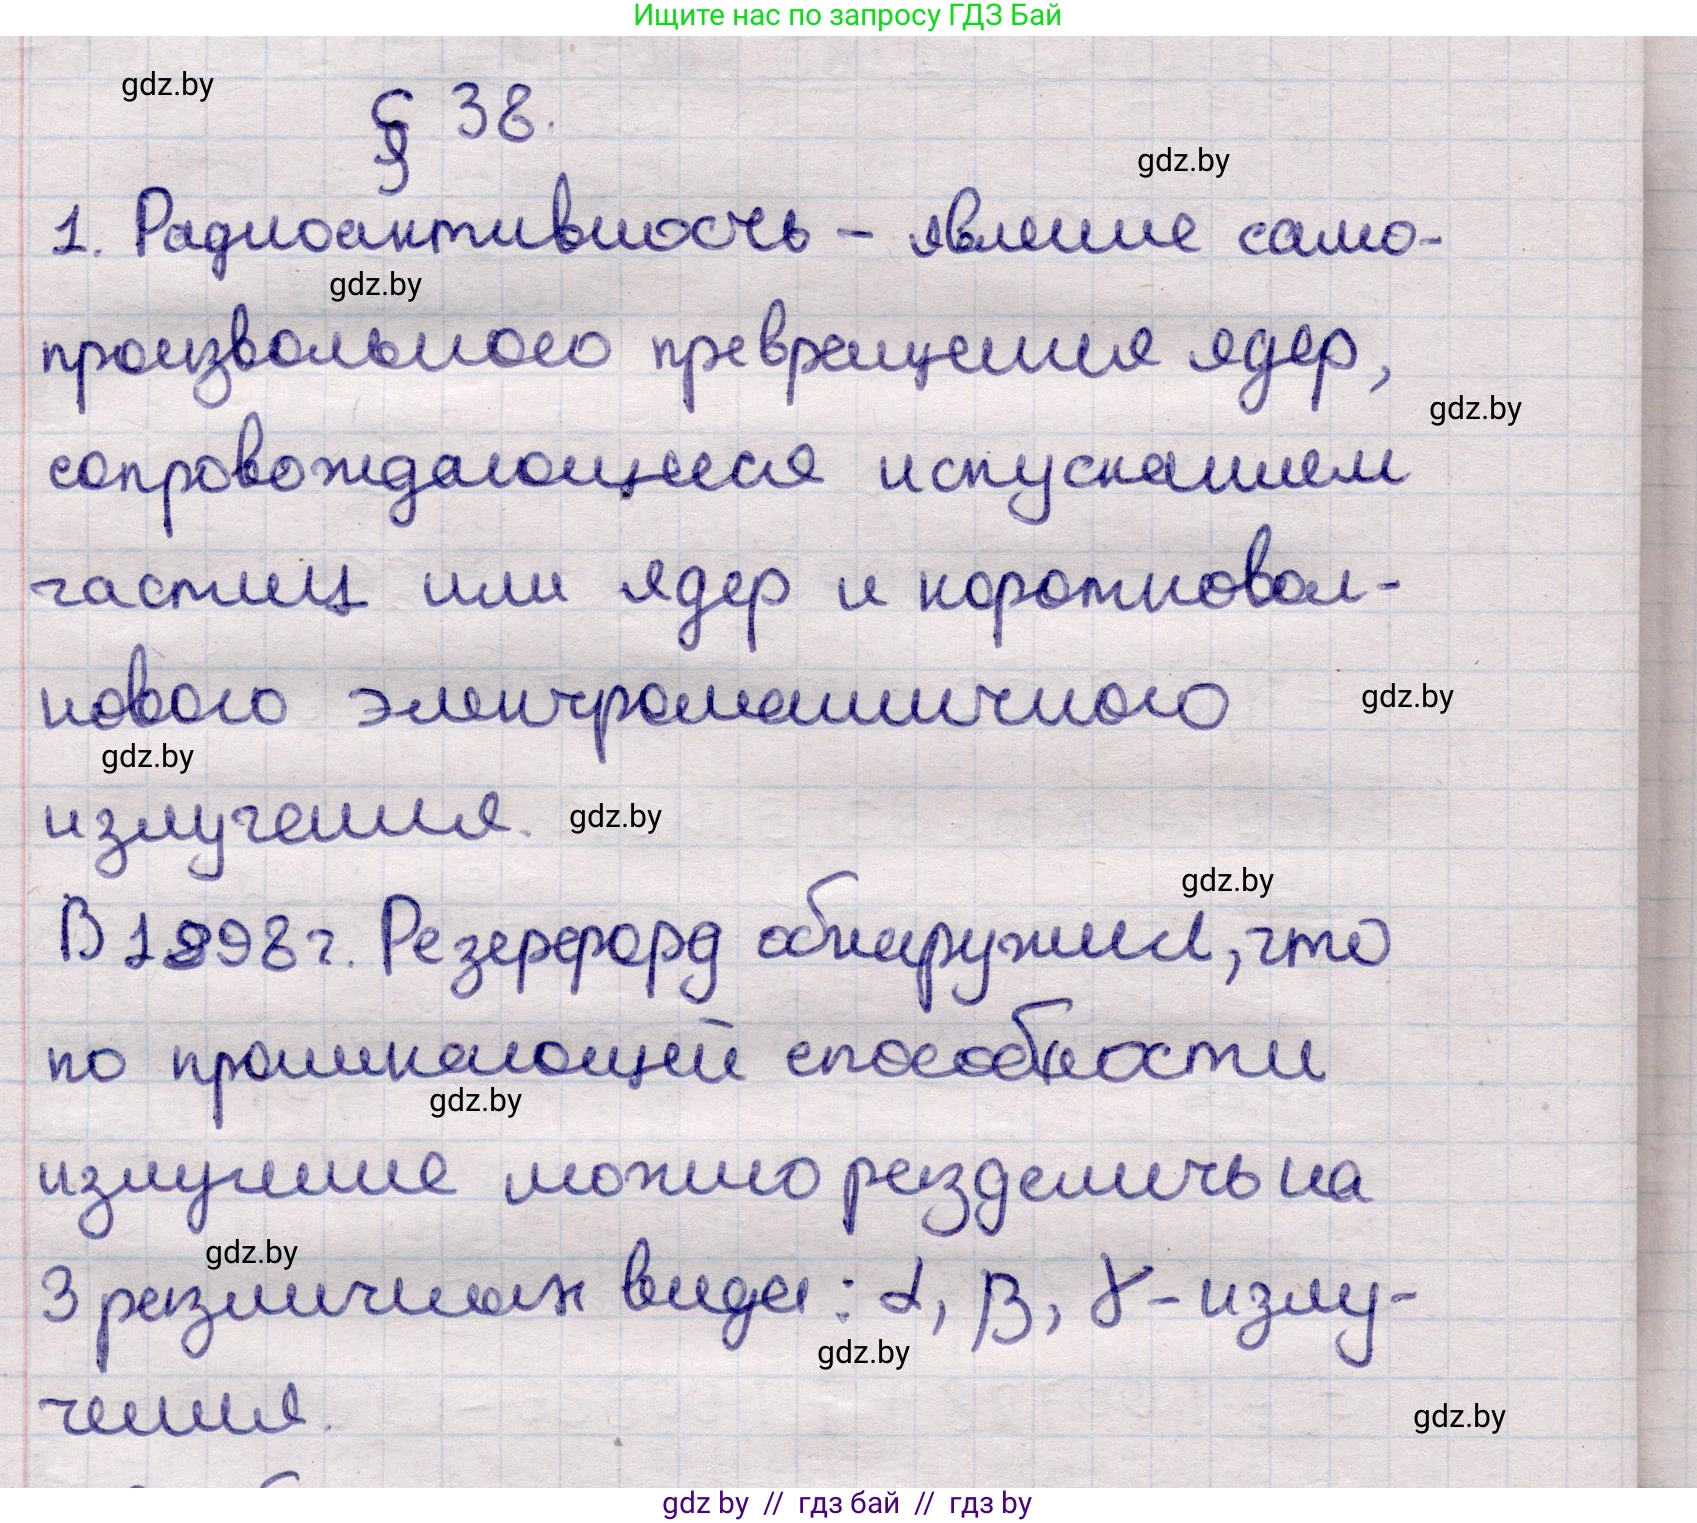 Ищите нас по запросу ГДЗ Бай
gdz.by
§ 38.
gdz.by
1. Радиоактивность – явление само-
gdz.by
произвольного превращения ядер,
gdz.by
сопровождающееся испусканием
частиц или ядер и коротковол-
нового электромагничного
gdz.by
gdz.by
излучения.
gdz.by
gdz.by
В 1898 г. Резерфорд обнаружил, что
по проникающей способности
gdz.by
излучение можно разделить на
gdz.by
3 различных вида: α, β, γ - излу-
gdz.by
чения.
gdz.by
gdz by // гдз бай // гдз by